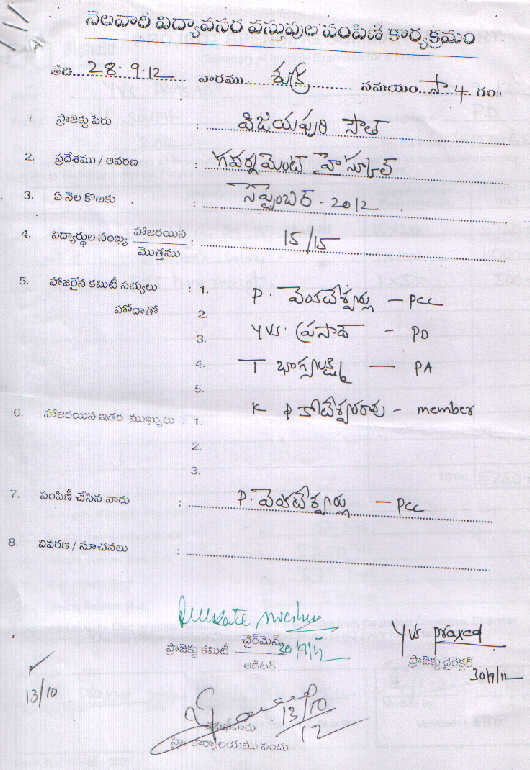 నెలవారి విద్యావసర వస్తువుల పంపిణీ కార్యక్రమం
తేది 28.9.12 వారము శుక్ర సమయం సా.4 గం
1. ప్రాజెక్టు పేరు : విజయపురి సౌత్
2. ప్రదేశము / ఆవరణ : గవర్నమెంట్ హై స్కూల్
3. ఏ నెల కొఱకు : సెప్టెంబర్ - 2012
4. విద్యార్థుల సంఖ్య హాజరయిన / మొత్తము : 15/15
5. హాజరైన కమిటీ సభ్యులు : 1. P. వెంకటేశ్వర్లు - PCC
హోదాతో 2.
3. YVS. ప్రసాద్ - PD
4. T భాగ్యలక్ష్మి - PA
5.
K కోటేశ్వరరావు - member
6. హాజరయిన ఇతర ముఖ్యులు : 1.
2.
3.
7. పంపిణీ చేసిన వారు : P. వెంకటేశ్వర్లు - PCC
8. వివరణ / సూచనలు :
ప్రాజెక్టు కమిటీ చైర్మెన్ 30/9/12
ఆడిటర్
YVS prasad
ప్రాజెక్టు డైరెక్టర్
30/9/12
13/10
13/10
12